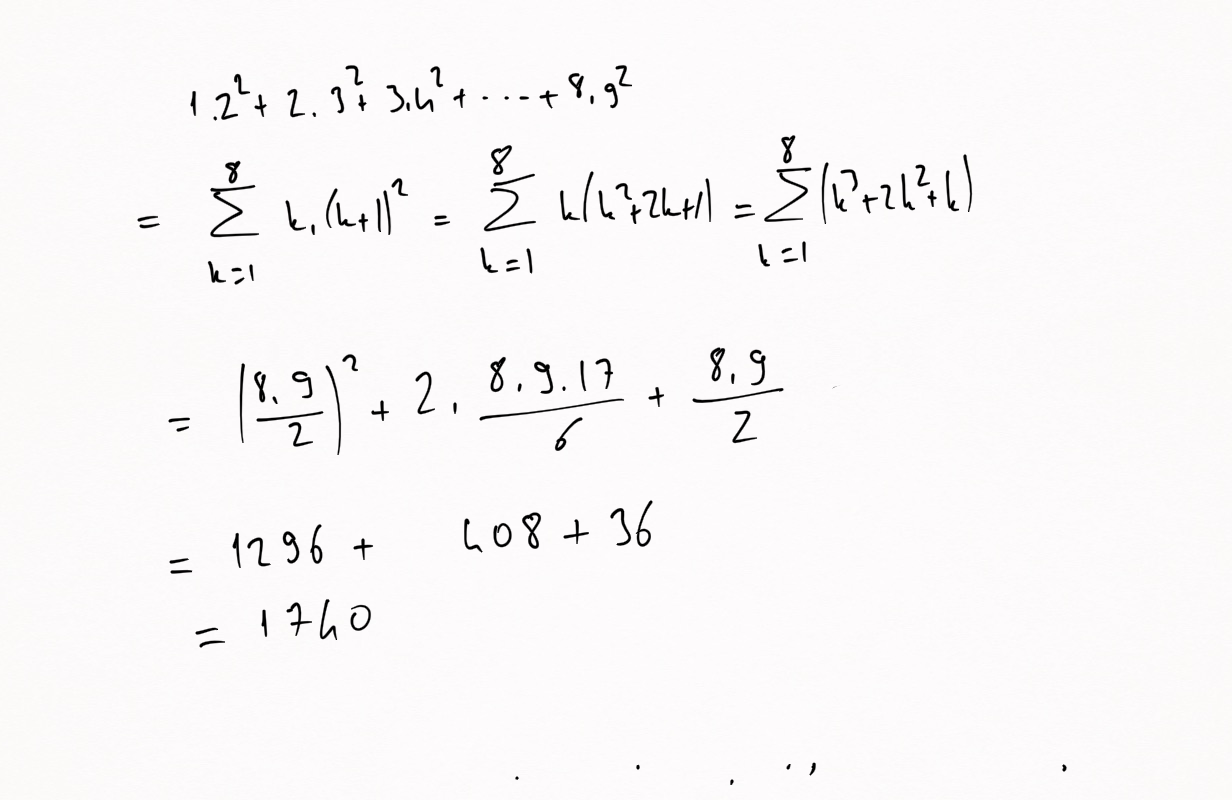 1.2² + 2.3² + 3.4² + ··· + 8.9²
= ∑_{k=1}^{8} k.(k+1)² = ∑_{k=1}^{8} k(k²+2k+1) = ∑_{k=1}^{8} (k³+2k²+k)
= (8.9/2)² + 2. 8.9.17/6 + 8.9/2
= 1296 + 408 + 36
= 1740